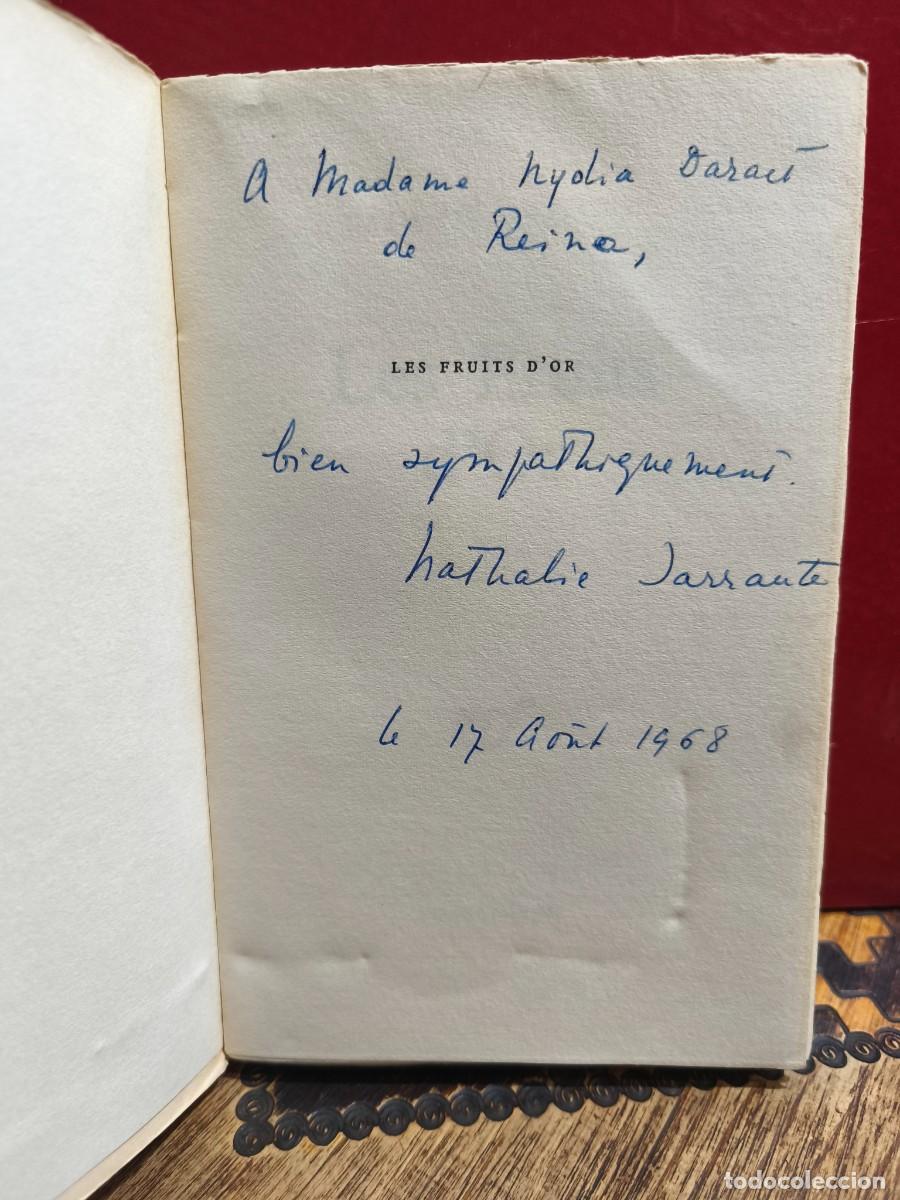 A Madame Nydia Daract
de Reina,
LES FRUITS D'OR
bien sympathiquement.
Nathalie Sarraute
le 17 Août 1968
todocoleccion